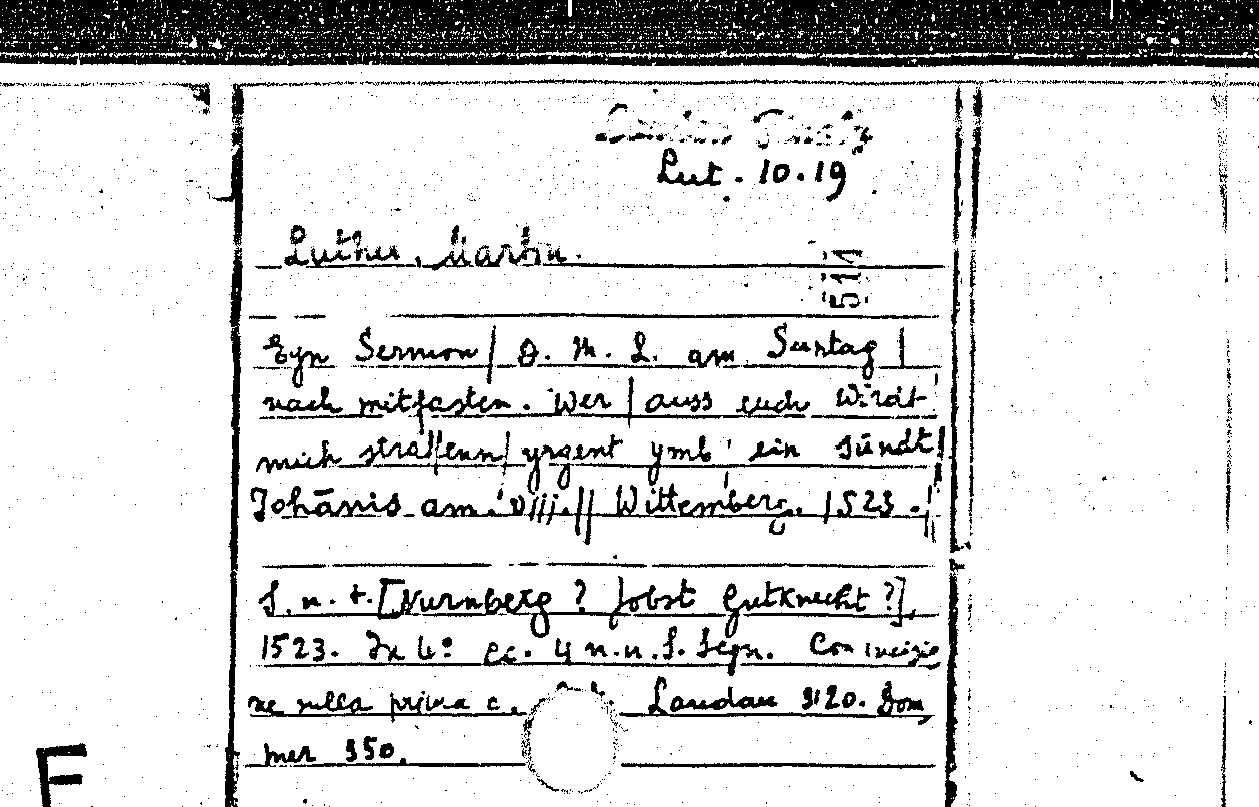 Lut. 10.19
Luther, Martin.
511
Eyn Sermon / D. M. L. am Suntag |
nach mitfasten. Wer | auss euch wirdt
mich straffenn / yrgent ymb | ein sündt /
Johānis am. viij. || Wittemberg. 1523. ||
S. n. t. [Nurnberg ? Jobst Gutknecht ?],
1523. In 4º cc. 4 n.n. S. Segn. Con incisio
ne nella prima c. Landau 3120. Dom
mer 350.
F